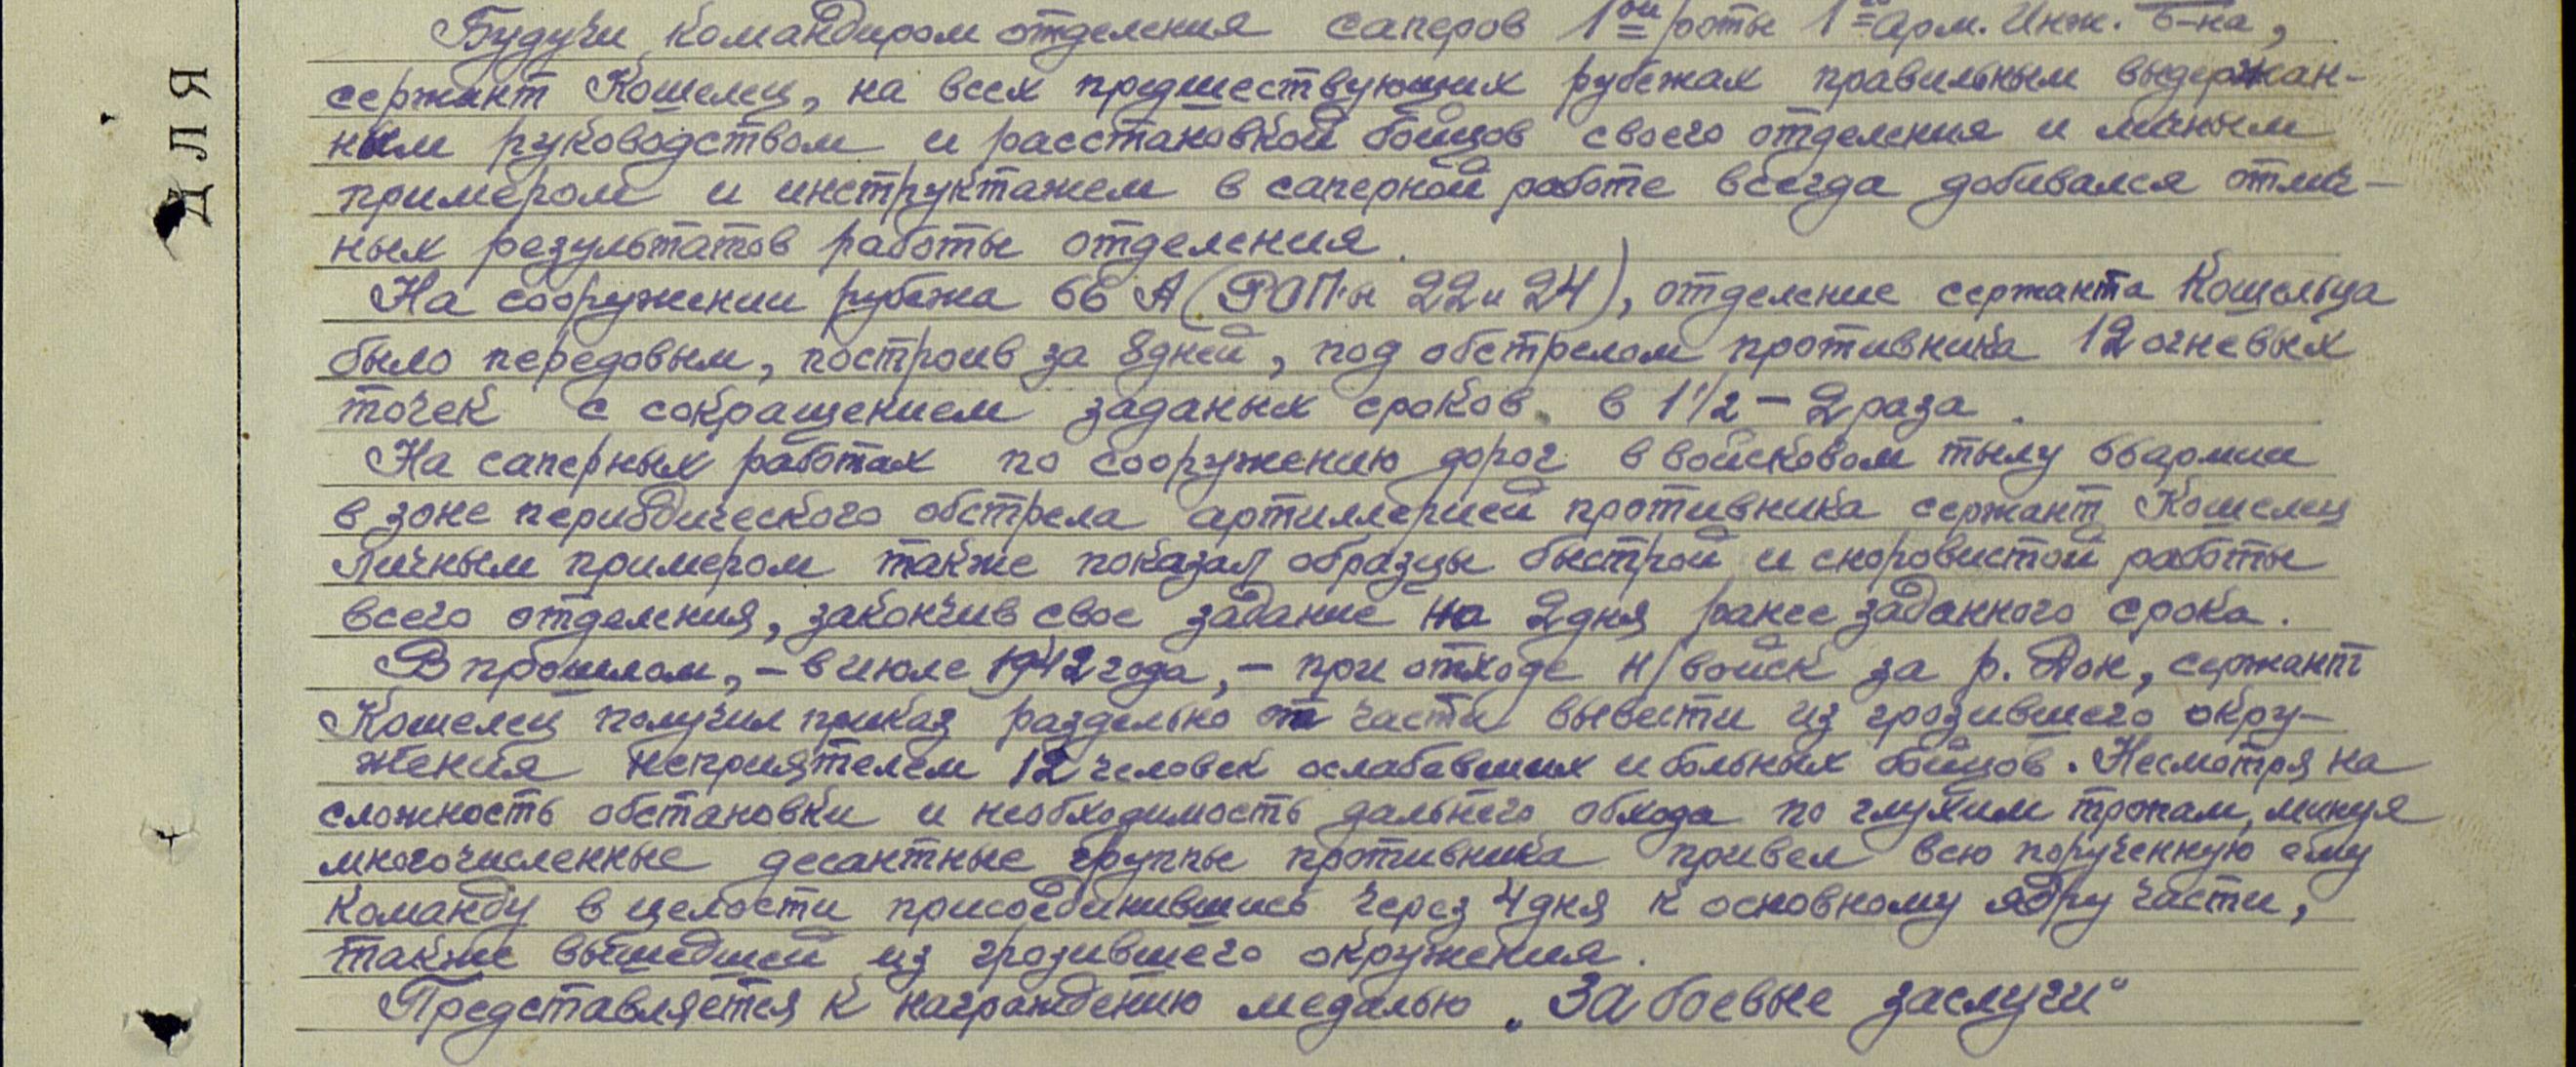 ДЛЯ
Будучи командиром отделения саперов 1ой роты 1го Арм. Инж. Б-на,
сержант Кошелец, на всех предшествующих рубежах правильным выдержан-
ным руководством и расстановкой бойцов своего отделения и личным
примером и инструктажем в саперной работе всегда добивался отлич-
ных результатов работы отделения.
На сооружении рубежа 66 А (РОП'ы 22 и 24), отделение сержанта Кошельца
было передовым, построив за 8 дней, под обстрелом противника 12 огневых
точек с сокращением заданых сроков в 1 1/2 - 2 раза.
На саперных работах по сооружению дорог в войсковом тылу 66 армии
в зоне периодического обстрела артиллерией противника сержант Кошелец
личным примером также показал образцы быстрой и сноровистой работы
всего отделения, закончив свое задание на 2 дня ранее заданного срока.
В прошлом, - в июле 1942 года, - при отходе н/войск за р. Дон, сержант
Кошелец получил приказ раздельно от части вывести из грозившего окру-
жения неприятелем 12 человек ослабевших и больных бойцов. Несмотря на
сложность обстановки и необходимость дальнего обхода по глухим тропам, минуя
многочисленные десантные группы противника привел всю порученную ему
команду в целости присоединившись через 4 дня к основному ядру части,
также вышедшей из грозившего окружения.
Представляется к награждению медалью „За боевые заслуги"